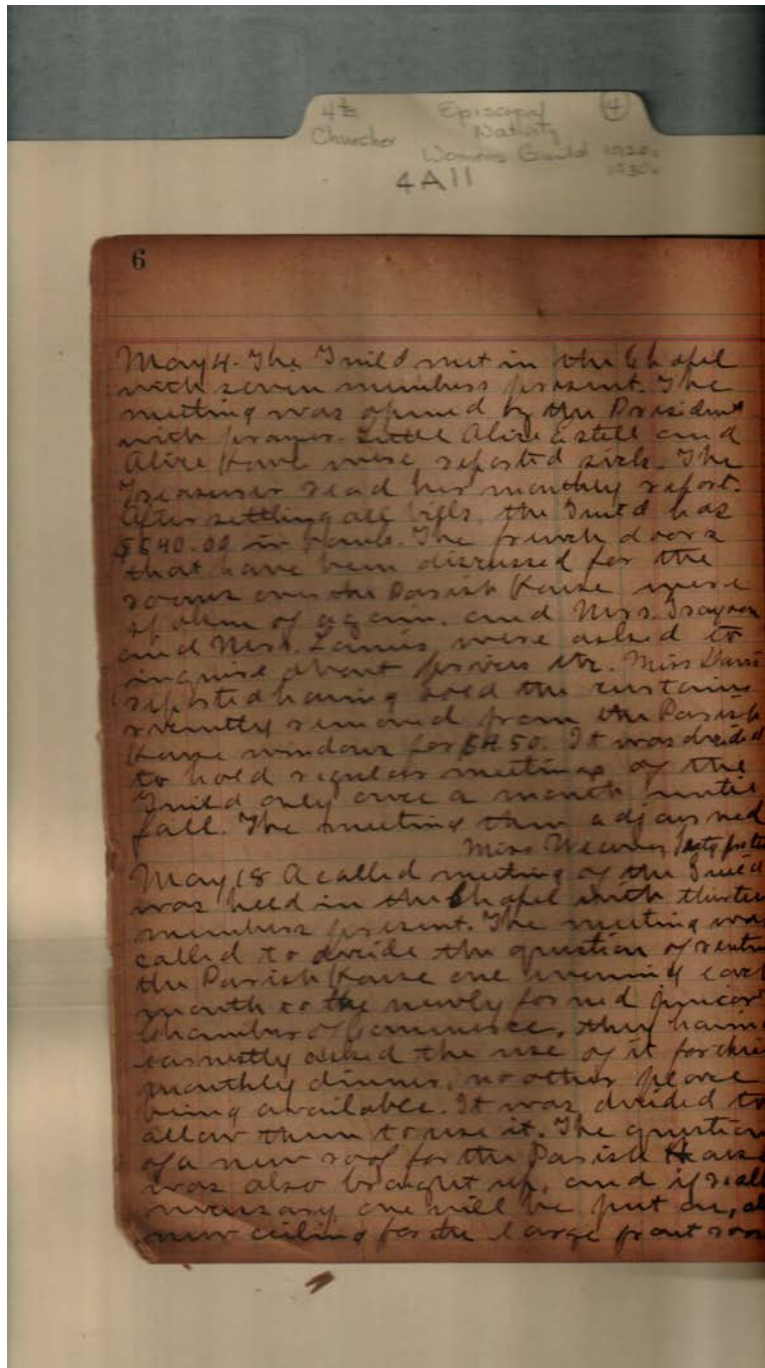 4th Episcopal ④
Churches Nativity
Womens Guild 1920s
1930s
4A11
6
May 4. The Guild met in the Chapel
with seven members present. The
meeting was opened by the President
with prayer. Little Alice and
Alice were reported sick. The
Treasurer read her monthly report.
After settling all bills, the Guild has
in bank. The french doors
that have been discussed for the
rooms over the Parish House were
spoken of again, and Mrs.
and Mrs. were asked to
inquire about prices etc. Miss
reported having sold the curtains
recently removed from the Parish
House windows for $4.50. It was decided
to hold regular meetings of the
Guild only once a month until
fall. The meeting then adjourned
Miss
May 18 A called meeting of the Guild
was held in the Chapel with
members present. The meeting was
called to decide the question of
the Parish House one evening each
month to the newly formed Junior
Chamber of Commerce, they having
earnestly asked the use of it for
monthly dinner, no other place
being available. It was decided to
allow them to use it. The question
of a new roof for the Parish House
was also brought up, and if
necessary one will be put on,
new ceiling for the large front room